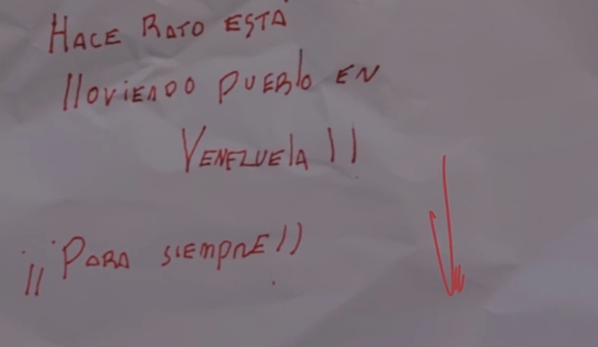 HACE RATO ESTÁ
lloviendo pueblo en
Venezuela !!
¡¡ Para siempre !!